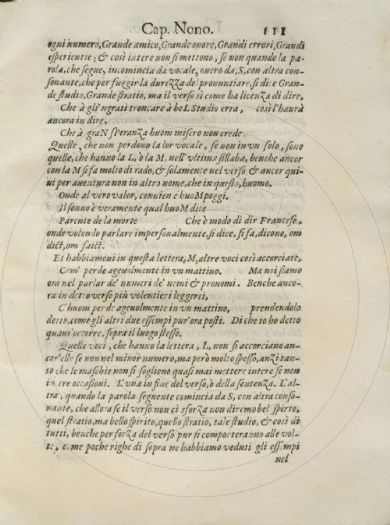 Cap. Nono. 111
ogni numero, Grande amico, Grande onore, Grandi errori, Grandi
esperientie; & così intere non si mettono, se non quando la pa-
rola, che segue, incomincia da vocale, ouero da, S, con altra con-
sonante, che per fuggir la durezza del pronuntiare, si dice Gran-
de studio, Grande stratio, ma il verso si come ha licenza di dire,
Che à gl'ingrati troncare à beL Studio erra, così l'haurà
ancora in dire,
Che à graN speranza huom misero non crede.
Quelle, che non perdono la lor vocale, se non in vn solo, sono
quelle, che hanno la L, ò la M, nell'vltima sillaba, benche ancor
con la M si fa molto di rado, & solamente nel verso & ancor qui-
ui per auentura non in altro nome, che in questo, huomo.
Onde al vero valor, conuien c'huoM poggi.
Il sonno è veramente qual huoM dice
Parente de la morte Che è modo di dir Francese,
onde volendo parlare impersonalmente, si dice, si fa, dicono, om
dict, om faict.
Et habbiamoui in questa lettera, M, altre voci così accorciate,
Com' perde ageuolmente in vn mattino. Ma noi siamo
ora nel parlar de' numeri de' nomi & pronomi. Benche anco-
ra in detto verso più volentieri leggerei,
C'huom perde ageuolmente in vn mattino, prendendolo
detto, come gli altri due essempi pur'ora posti. Di che io ho detto
quanto occorre, sopra il luogo stesso.
Quelle voci, che hanno la lettera, L, non si accorciano an-
cor'elle se non nel minor numero, ma però molto spesso, anzi tan-
to che le maschie non si sogliono quasi mai mettere intere se non
in tre occasioni. L'vna in fine del verso, ò della sentenza. L'al-
tra, quando la parola seguente comincia da S, con altra conso-
nante, che allora se il verso non ci sforza non diremo bel spirto,
quel stratio, ma bello spirito, quello stratio, tale studio, & così di
tutti, benche per forza del verso pur si comporteranno alle vol-
te, come poche righe di sopra ne habbiamo veduti gli essempi
nel